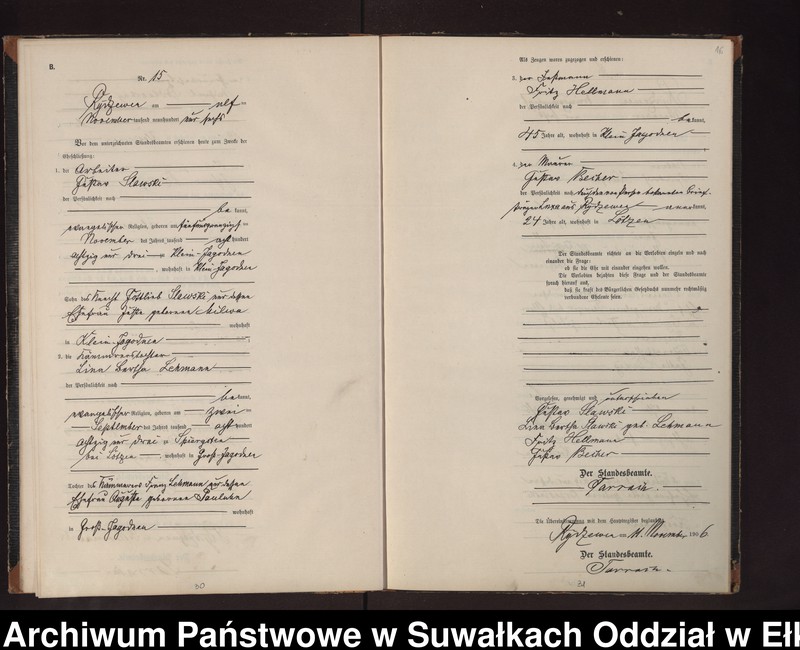 B.
Nr. 15
Rydzewen am elf ten
November tausend neunhundert und sechs
Vor dem unterzeichneten Standesbeamten erschienen heute zum Zwecke der
Eheschließung:
1. der Arbeiter
Gustav Slawski
der Persönlichkeit nach
be kannt,
evangelischer Religion, geboren am fünfundzwanzigsten
November des Jahres tausend acht hundert
achtzig und drei zu Klein-Jagodnen
, wohnhaft in Klein-Jagodnen
Sohn des Knecht Gottlieb Slawski und dessen
Ehefrau Juste geborene
wohnhaft
in Klein-Jagodnen
2. die Kämmererstochter
Lina Bertha Lehmann
der Persönlichkeit nach
be kannt,
evangelischer Religion, geboren am zwei ten
September des Jahres tausend acht hundert
achtzig und drei zu Spiergsten
bei Lötzen, wohnhaft in Groß-Jagodnen
Tochter des Kämmerers Franz Lehmann und dessen
Ehefrau Auguste geborenen
wohnhaft
in Groß-Jagodnen
30
16
Als Zeugen waren zugezogen und erschienen:
3. der
Fritz Hellmann
der Persönlichkeit nach
be kannt,
45 Jahre alt, wohnhaft in Klein Jagodnen
4. der Maurer
Gustav Becker
der Persönlichkeit nach durch den von Person bekannten
aus Rydzewen anerkannt,
24 Jahre alt, wohnhaft in Lötzen
Der Standesbeamte richtete an die Verlobten einzeln und nach
einander die Frage:
ob sie die Ehe mit einander eingehen wollen.
Die Verlobten bejahten diese Frage und der Standesbeamte
sprach hierauf aus,
daß sie kraft des Bürgerlichen Gesetzbuchs nunmehr rechtmäßig
verbundene Eheleute seien.
Vorgelesen, genehmigt und unterschrieben
Gustav Slawski
Lina Bertha Slawski geb. Lehmann
Fritz Hellmann
Gustav Becker
Der Standesbeamte.
Tarrach.
Die Übereinstimmung mit dem Hauptregister beglaubigt
Rydzewen am 11. November 1906
Der Standesbeamte.
Tarrach.
31
Archiwum Państwowe w Suwałkach Oddział w Ełk